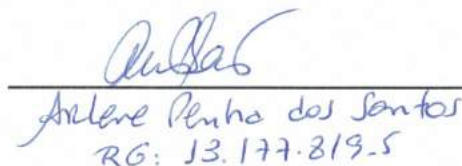 Arlene Penha dos Santos
RG: 13.177.819-5